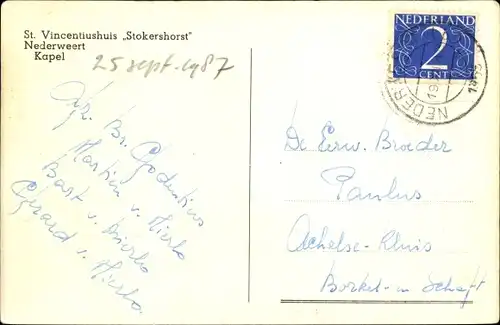 St. Vincentiushuis „Stokershorst"
Nederweert
Kapel
25 sept. 1987
Afz. Br. Godentius
Martien v. Mierlo
Bart v. Mierlo
Gerard v. Mierlo.
NEDERLAND
2
CENT
De Eerw. Broeder
Paulus
Achelse-Kluis
Borkel-en Schaft